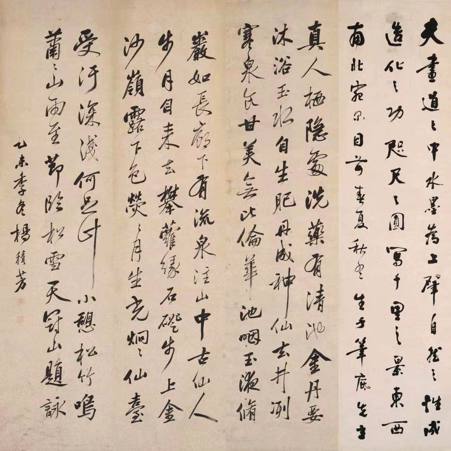 夫畫道之中水墨為上肇自然之性成
造化之功咫尺之圖寫千里之景東西
南北宛爾目前春夏秋冬生于筆底
真人栖隱處洗藥有清池金丹要
沐浴玉水自生肥丹成神仙去井冽
寒泉食甘美無比倫華池咽玉液脩
巖如長廊下有流泉注山中古仙人
步月自来去攀蘿緣石磴步上金
沙嶺露下色熒〻月生光炯〻仙臺
受汙深淺何小憩松竹鳴
蕭〻山雨至節臨松雪天冠山題詠
乙未季冬楊積芳